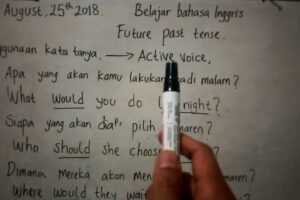 August, 25th 2018. Belajar bahasa Inggris
Future past tense.
gunaan kata tanya. → Active voice,
Apa yang akan kamu lakukan tadi malam?
What would you do night?
Siapa yang akan dia pr pilih maren?
Who should she choose
Dimana mereka akan men
Where would they wai